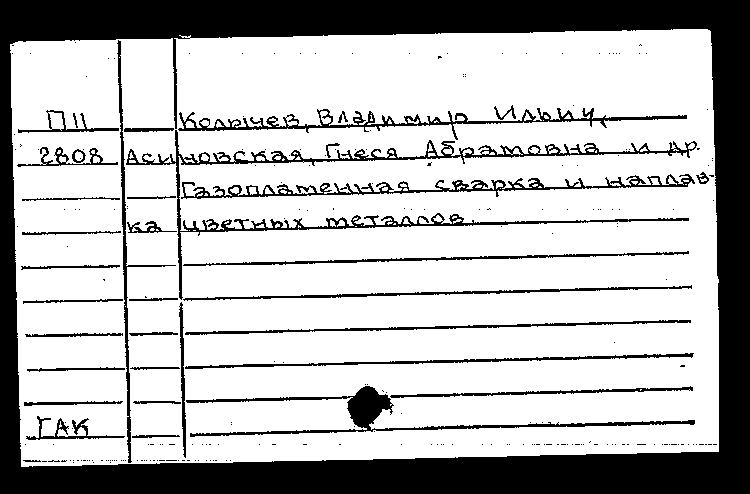 П11 Колычев, Владимир Ильич,
2808 Асиновская, Гнеся Абрамовна и др.
Газопламенная сварка и наплав-
ка цветных металлов.
ГАК